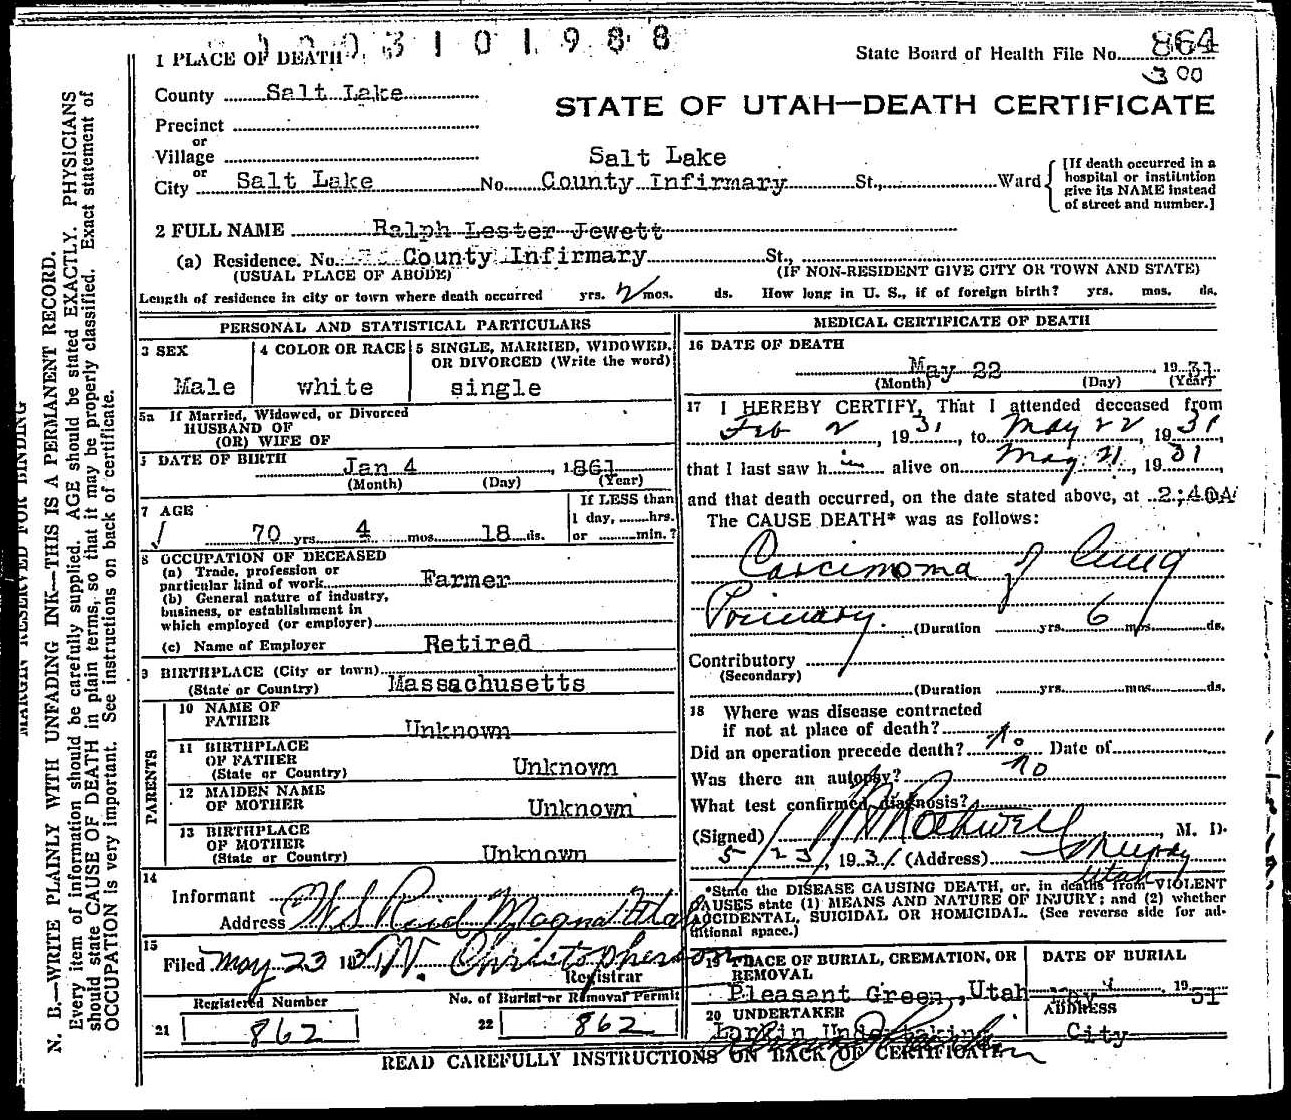 1 PLACE OF DEATH 3 1 0 1 9 8 8
State Board of Health File No. 864
300
County Salt Lake
STATE OF UTAH—DEATH CERTIFICATE
Precinct
or
Village
Salt Lake
or
City Salt Lake No. County Infirmary St., Ward
[If death occurred in a hospital or institution give its NAME instead of street and number.]
2 FULL NAME Ralph Lester Jewett
(a) Residence. No. County Infirmary St.,
(USUAL PLACE OF ABODE) (IF NON-RESIDENT GIVE CITY OR TOWN AND STATE)
Length of residence in city or town where death occurred yrs. 2 mos. ds. How long in U. S., if of foreign birth? yrs. mos. ds.
PERSONAL AND STATISTICAL PARTICULARS
3 SEX
Male
4 COLOR OR RACE
white
5 SINGLE, MARRIED, WIDOWED, OR DIVORCED (Write the word)
single
5a If Married, Widowed, or Divorced
HUSBAND OF
(OR) WIFE OF
DATE OF BIRTH
Jan 4, 1861
(Month) (Day) (Year)
7 AGE
70 yrs. 4 mos. 18 ds.
If LESS than
1 day, hrs.
or min.?
8 OCCUPATION OF DECEASED
(a) Trade, profession or
particular kind of work Farmer
(b) General nature of industry,
business, or establishment in
which employed (or employer)
(c) Name of Employer Retired
9 BIRTHPLACE (City or town)
(State or Country) Massachusetts
PARENTS
10 NAME OF
FATHER Unknown
11 BIRTHPLACE
OF FATHER
(State or Country) Unknown
12 MAIDEN NAME
OF MOTHER Unknown
13 BIRTHPLACE
OF MOTHER
(State or Country) Unknown
14
Informant W. S. Reid
Address Magna Utah
15
Filed May 23 193 W. Christopherson
Registrar
Registered Number
21 862
No. of Burial or Removal Permit
22 862
MEDICAL CERTIFICATE OF DEATH
16 DATE OF DEATH
May 22 1931
(Month) (Day) (Year)
17 I HEREBY CERTIFY, That I attended deceased from
Feb 2, 1931, to May 22, 1931,
that I last saw him alive on May 21, 1931,
and that death occurred, on the date stated above, at 2;40A
The CAUSE DEATH* was as follows:
Carcinoma of
Primary. (Duration yrs. 6 mos. ds.
Contributory
(Secondary)
(Duration yrs. mos. ds.
18 Where was disease contracted
if not at place of death?
Did an operation precede death? No Date of
Was there an autopsy? no
What test confirmed diagnosis?
(Signed) Rothwell, M. D.
5/23, 1931 (Address) Murray
Utah
*State the DISEASE CAUSING DEATH, or, in deaths from VIOLENT
CAUSES state (1) MEANS AND NATURE OF INJURY; and (2) whether
ACCIDENTAL, SUICIDAL OR HOMICIDAL. (See reverse side for additional space.)
19 PLACE OF BURIAL, CREMATION, OR
REMOVAL
Pleasant Green, Utah
DATE OF BURIAL
May 1931
20 UNDERTAKER
Larkin Undertaking
ADDRESS
City
READ CAREFULLY INSTRUCTIONS ON BACK OF CERTIFICATE
MARGIN RESERVED FOR BINDING
N. B.—WRITE PLAINLY WITH UNFADING INK—THIS IS A PERMANENT RECORD.
Every item of information should be carefully supplied. AGE should be stated EXACTLY. PHYSICIANS
should state CAUSE OF DEATH in plain terms, so that it may be properly classified. Exact statement of
OCCUPATION is very important. See instructions on back of certificate.